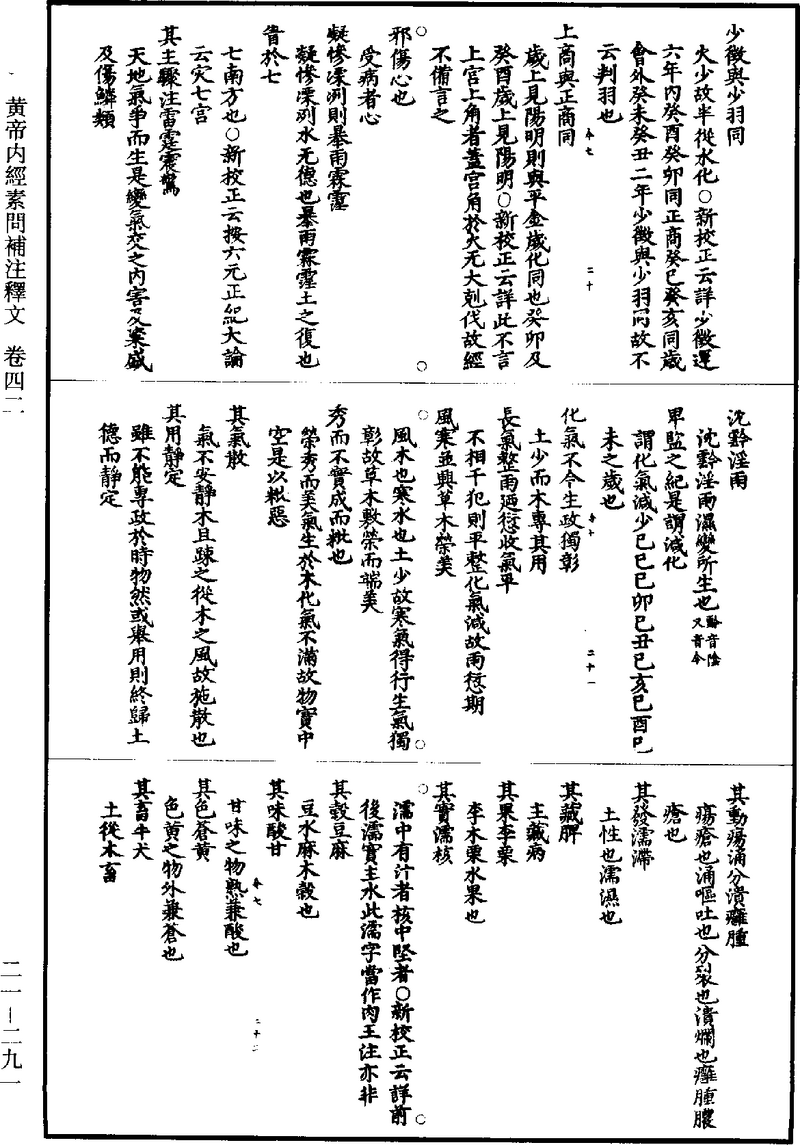 黄帝内經素問補注釋文 卷四二
二一—二九一
少徵與少羽同
火少故半從水化○新校正云詳少徵運
六年内癸酉癸卯同正商癸巳癸亥同歲
會外癸未癸丑二年少徵與少羽同故不
云判羽也
上商與正商同
歲上見陽明則與平金歲化同也癸卯及
癸酉歲上見陽明○新校正云詳此不言
上宫上角者蓋宫角於火无大剋伐故經
不備言之
邪傷心也
受病者心
凝慘凓冽則暴雨霖霪
凝慘凓冽水无德也暴雨霖霪土之復也
眚於七
七南方也○新校正云按六元正紀大論
云灾七宫
其主驟注雷霆震驚
天地氣爭而生是變氣交之内害及粢盛
及傷鱗類
沈黔淫雨
沈黔淫雨濕變所生也黔音陰又音今
卑監之紀是謂減化
謂化氣減少己巳己卯己丑己亥己酉己
未之歲也
化氣不令生政獨彰
土少而木專其用
長氣整雨迺愆收氣平
不相干犯則平整化氣減故雨愆期
風寒並興草木榮美
風木也寒水也土少故寒氣得行生氣獨
彰故草木敷榮而端美
秀而不實成而粃也
榮秀而美氣生於木化氣不滿故物實中
空是以粃惡
其氣散
氣不安靜木且踈之從木之風故施散也
其用靜定
雖不能專政於時物然或舉用則終歸土
德而靜定
其動瘍涌分潰癰腫
瘍瘡也涌嘔吐也分裂也潰爛也癰腫膿
瘡也
其發濡滯
土性也濡濕也
其藏脾
主藏病
其果李栗
李木栗水果也
其實濡核
濡中有汁者核中堅者○新校正云詳前
後濡實主水此濡字當作肉王注亦非
其穀豆麻
豆水麻木穀也
其味酸甘
甘味之物熟兼酸也
其色蒼黄
色黄之物外兼蒼也
其畜牛犬
土從木畜